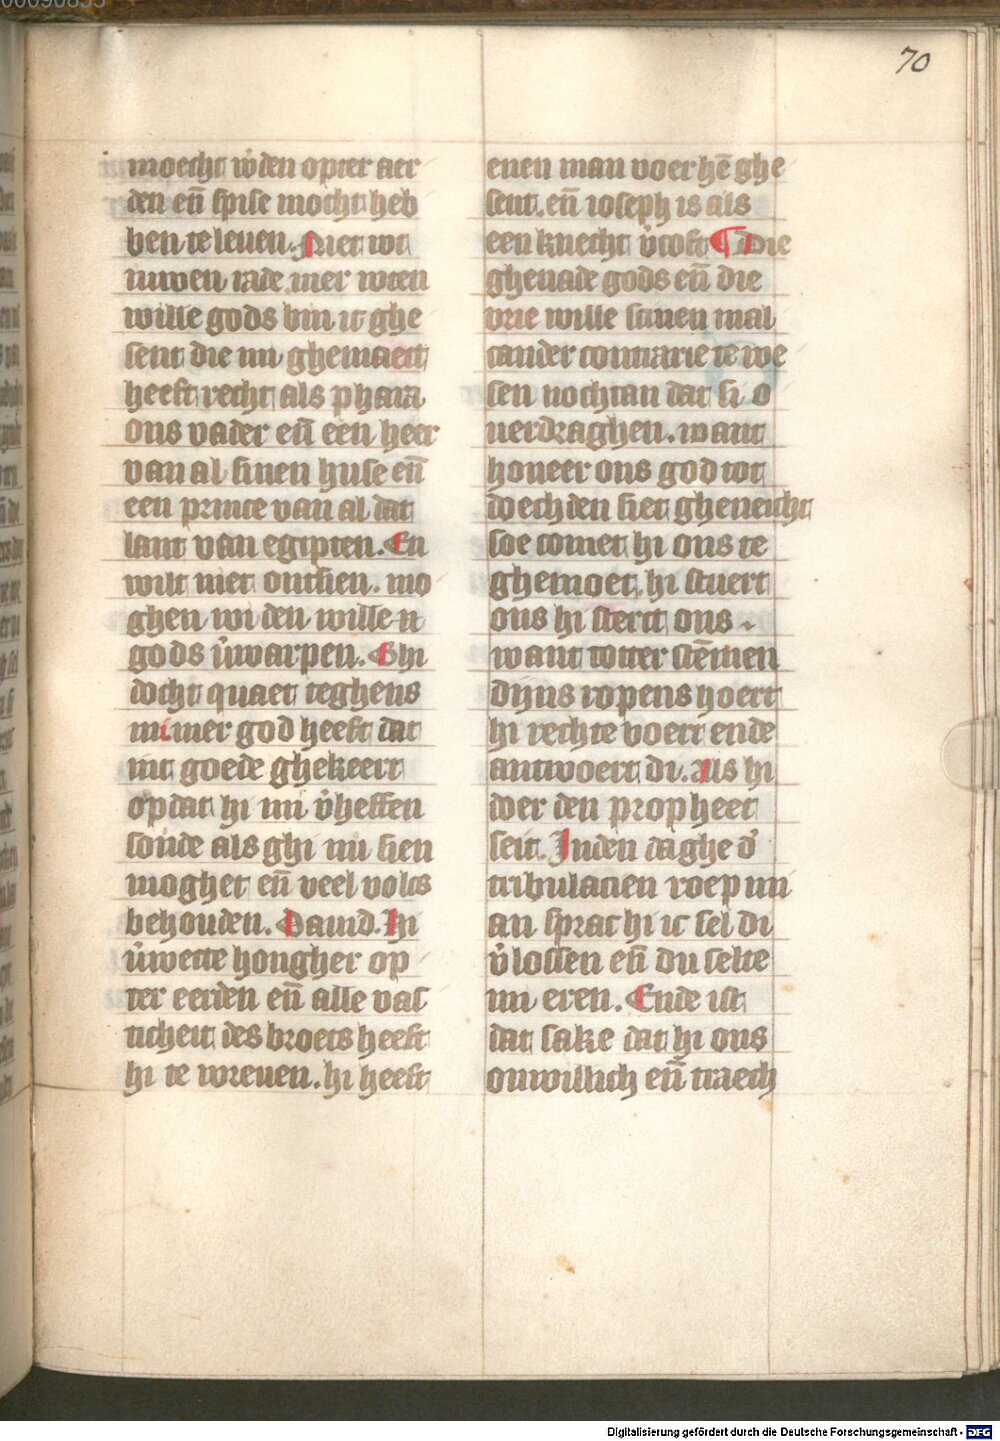 70
moecht w̉den opter aer
den en̄ spise mocht heb
ben te leuen. Niet wt
uwen rade mer wten
wille gods bin ic ghe
sent die mi ghemaect
heeft recht als phara
ons vader en̄ een heer
van al sinen huse en̄
een prince van al dat
lant van egipten. En
wilt niet ontsien. mo
ghen wi den wille
gods v̉warpen. Ghi
docht quaet teghens
mi mer god heeft dat
mit goede ghekeert
opdat hi mi v̉heffen
sonde als ghi nu sien
moghet en̄ veel volcs
behouden. Dauid. Hi
v̉wecte hongher op
ter eerden en̄ alle vas
ticheit des broets heeft
hi te wreuen. hi heeft
enen man voer hē ghe
sent. en̄ ioseph is als
een knecht v̉coft ¶ Die
ghenade gods en̄ die
vrie wille sinen mal
cander contrarie te we
sen nochtan dat si o
uerdraghen. want
honeer ons god tot
doechden siet gheneicht
soe comet hi ons te
ghemoet. hi stuert
ons hi sterct ons
want totter stēmen
dijns ropens hoert
hi rechte voert ende
antwoert di. Als hi
doer den propheet
seit. Inden daghe d̉
tribulacien roep mi
an sprac hi ic sel di
v̉lossen en̄ du selte
mi eren. Ende ist
dat sake dat hi ons
onwillich en̄ traech
Digitalisierung gefördert durch die Deutsche Forschungsgemeinschaft - DFG